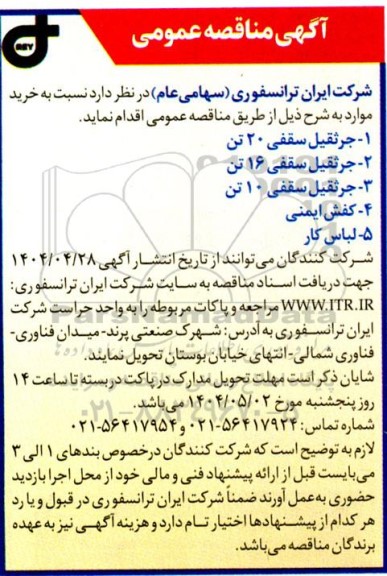 آگهی مناقصه عمومی
DEY
شرکت ایران ترانسفوری (سهامی عام) در نظر دارد نسبت به خرید
موارد به شرح ذیل از طریق مناقصه عمومی اقدام نماید.
۱- جرثقیل سقفی ۲۰ تن
۲- جرثقیل سقفی ۱۶ تن
۳- جرثقیل سقفی ۱۰ تن
۴- کفش ایمنی
۵- لباس کار
شرکت کنندگان می‌توانند از تاریخ انتشار آگهی ۱۴۰۴/۰۴/۲۸
جهت دریافت اسناد مناقصه به سایت شرکت ایران ترانسفوری:
WWW.ITR.IR مراجعه و پاکات مربوطه را به واحد حراست شرکت
ایران ترانسفوری به آدرس: شهرک صنعتی پرند- میدان فناوری-
فناوری شمالی- انتهای خیابان بوستان تحویل نمایند.
شایان ذکر است مهلت تحویل مدارک در پاکت دربسته تا ساعت ۱۴
روز پنجشنبه مورخ ۱۴۰۴/۰۵/۰۲ می‌باشد.
شماره تماس: ۵۶۴۱۷۹۲۴-۰۲۱ و ۵۶۴۱۷۹۵۴-۰۲۱
لازم به توضیح است که شرکت کنندگان درخصوص بندهای ۱ الی ۳
می‌بایست قبل از ارائه پیشنهاد فنی و مالی خود از محل اجرا بازدید
حضوری به عمل آورند ضمناً شرکت ایران ترانسفوری در قبول و یا رد
هر کدام از پیشنهادها اختیار تام دارد و هزینه آگهی نیز به عهده
برندگان مناقصه می‌باشد.